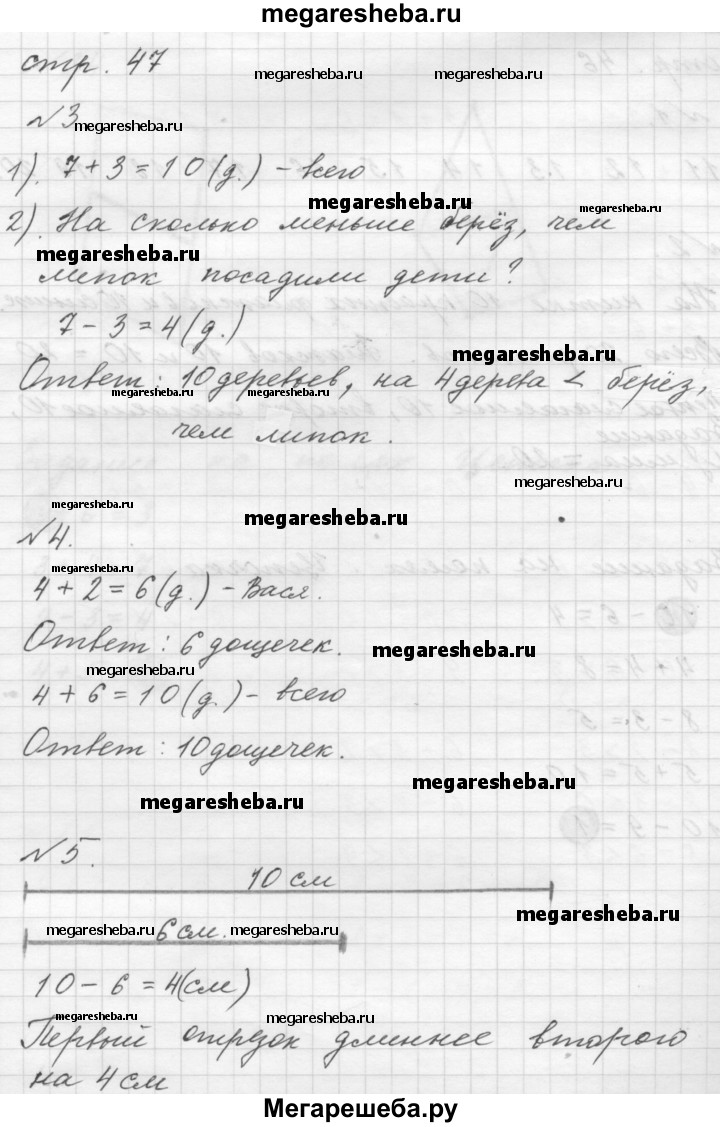 megaresheba.ru
стр. 47
megaresheba.ru megaresheba.ru
№3
megaresheba.ru
1). 7 + 3 = 10 (д.) - всего
megaresheba.ru megaresheba.ru
2). На сколько меньше берёз, чем
megaresheba.ru
липок посадили дети?
7 - 3 = 4 (д.)
megaresheba.ru
Ответ: 10 деревьев, на 4 дерева < берёз,
megaresheba.ru megaresheba.ru
чем липок.
megaresheba.ru
megaresheba.ru megaresheba.ru
№4.
4 + 2 = 6 (д.) - Вася.
Ответ: 6 дощечек.
megaresheba.ru
megaresheba.ru
4 + 6 = 10 (д.) - всего
Ответ: 10 дощечек.
megaresheba.ru
megaresheba.ru
№5.
10 см
megaresheba.ru
megaresheba.ru 6 см. megaresheba.ru
10 - 6 = 4 (см)
megaresheba.ru megaresheba.ru
Первый отрезок длиннее второго
на 4 см
megaresheba.ru
Мегарешеба.ру